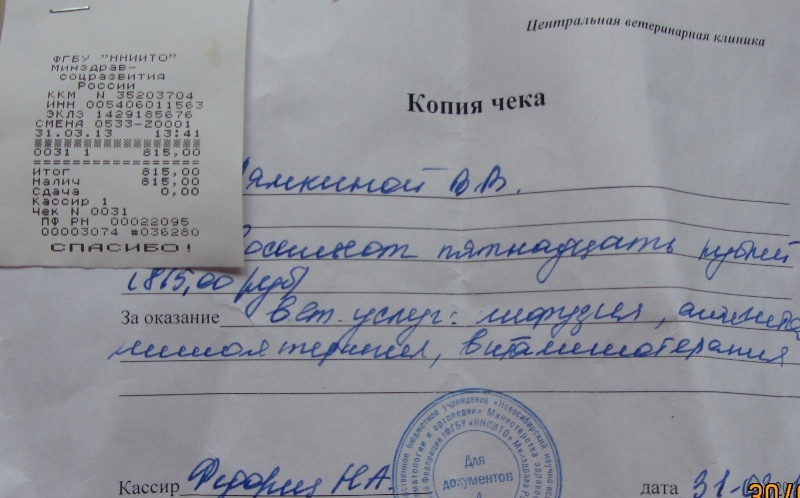 ФГБУ "ННИИТО"
Минздрав-
соцразвития
России
ККМ N 35203704
ИНН 005406011563
ЭКЛЗ 1429185676
СМЕНА 0533-Z0001
31.03.13 13:41
0031 1 815,00
Итог 815,00
Налич 815,00
Сдача 0,00
Кассир 1
Чек N 0031
ПФ РН 00022095
00003074 #036280
СПАСИБО!
Центральная ветеринарная клиника
Копия чека
В.В.
пятнадцать рублей
(815,00 руб)
За оказание Вет. услуг: инфузия,
витаминотерапия
Для
документов
Кассир Н.А.
дата 31-03